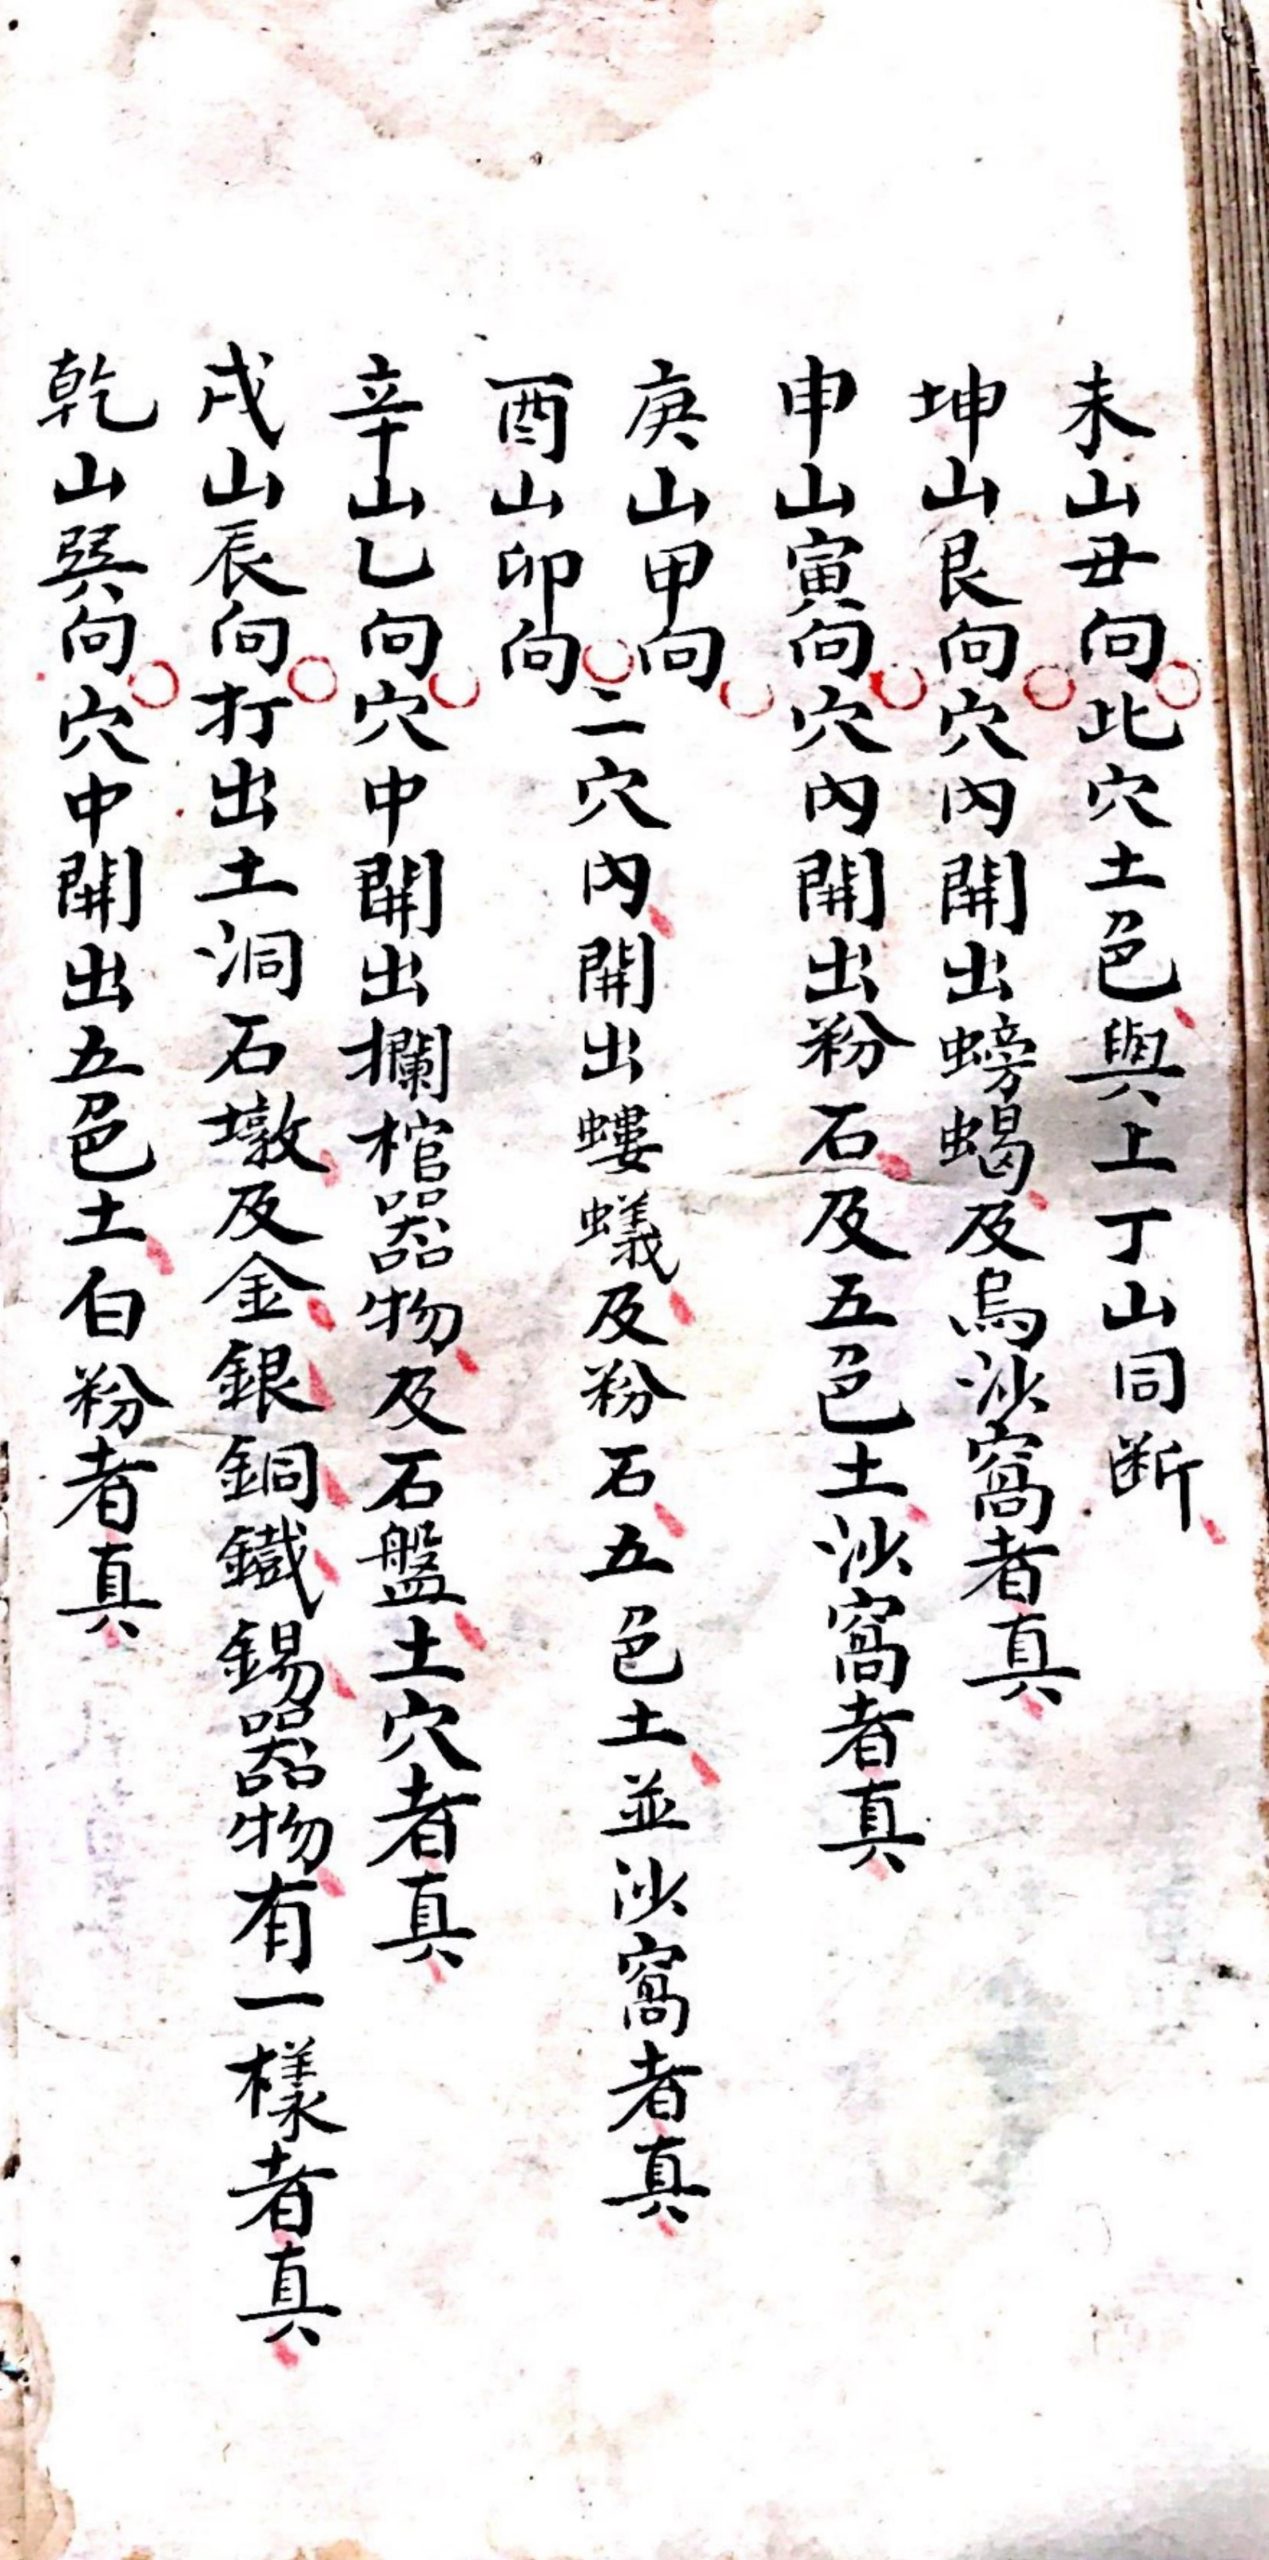 未山丑向此穴土色與上丁山同断
坤山艮向穴內開出螃蝎及烏沙窩者真
申山寅向穴內開出粉石及五色土沙窩者真
庚山甲向
酉山卯向
二穴內開出螻蟻及粉石五色土並沙窩者真
辛山乙向穴中開出攔棺器物及石盤土穴者真
戌山辰向打出土洞石墩及金銀銅鐵錫器物有一樣者真
乾山巽向穴中開出五色土白粉者真